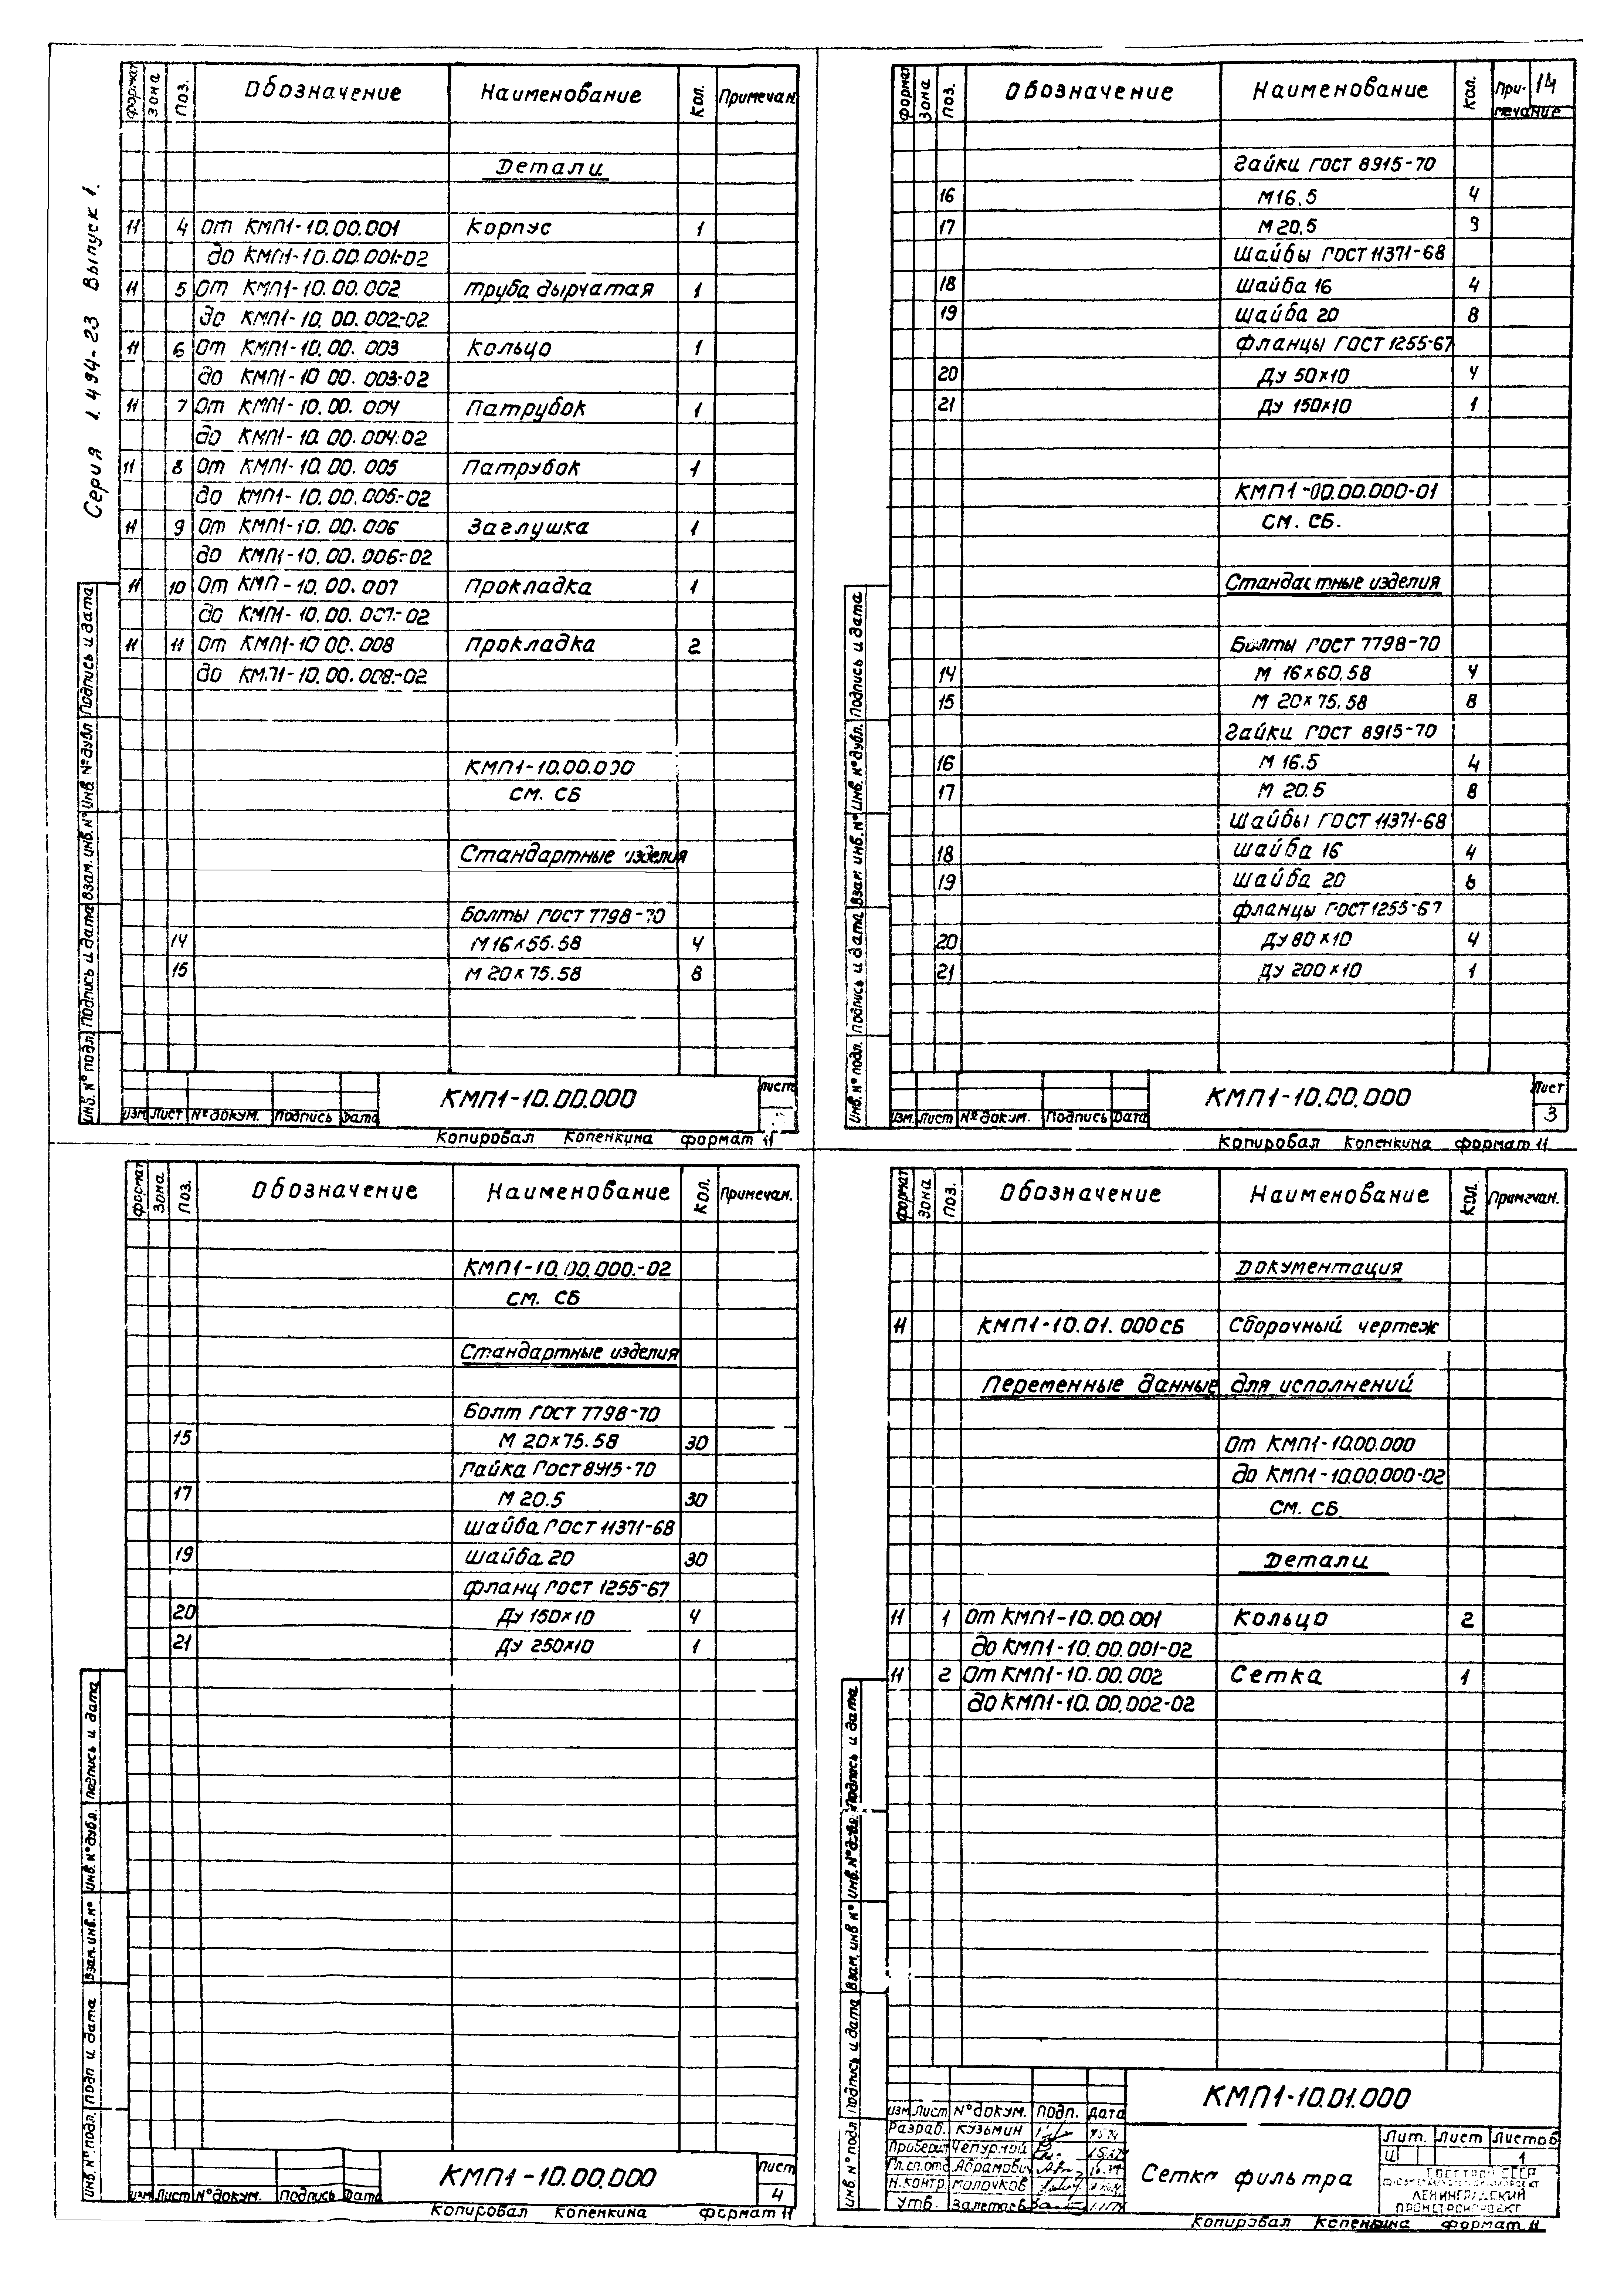 Серия 1.494-23 Выпуск 1.
формат Зона Поз. Обозначение Наименование Кол. Примечан.
Детали
11 4 От КМП1-10.00.001 Корпус 1
до КМП1-10.00.001-02
11 5 От КМП1-10.00.002 труба дырчатая 1
до КМП1-10.00.002-02
11 6 От КМП1-10.00.003 Кольцо 1
до КМП1-10 00.003-02
11 7 От КМП1-10.00.004 Патрубок 1
до КМП1-10.00.004-02
11 8 От КМП1-10.00.005 Патрубок 1
до КМП1-10.00.005-02
11 9 От КМП1-10.00.006 Заглушка 1
до КМП1-10.00.006-02
11 10 От КМП-10.00.007 Прокладка 1
до КМП1-10.00.007-02
11 11 От КМП1-10 00.008 Прокладка 2
до КМП1-10.00.008-02
КМП1-10.00.000
СМ. СБ
Стандартные изделия
Болты ГОСТ 7798-70
14 М16×55.58 4
15 М 20×75.58 8
Инв. № подл. Подпись и дата Взам. инв. № Инв № дубл Подпись и дата
КМП1-10.00.000
Лист
Изм Лист № докум. Подпись Дата
Копировал Копенкина формат 11
14
формат Зона Поз. Обозначение Наименование Кол. Примечание
Гайки ГОСТ 8915-70
16 М16.5 4
17 М 20.5
Шайбы ГОСТ 11371-68
18 Шайба 16 4
19 Шайба 20 8
Фланцы ГОСТ 1255-67
20 Ду 50×10 4
21 Ду 150×10 1
КМП1-00.00.000-01
СМ. СБ.
Стандартные изделия
Болты ГОСТ 7798-70
14 М 16×60.58 4
15 М 20×75.58 8
Гайки ГОСТ 8915-70
16 М 16.5 4
17 М 20.5 8
Шайбы ГОСТ 11371-68
18 Шайба 16 4
19 Шайба 20
Фланцы ГОСТ 1255-67
20 Ду 80×10 4
21 Ду 200×10 1
Инв. № подл. Подпись и дата Взам. инв. № Инв. № дубл. Подпись и дата
КМП1-10.00.000
Лист
3
Изм. Лист № докум. Подпись Дата
Копировал Копенкина формат 11
формат Зона Поз. Обозначение Наименование Кол. Примечан.
КМП1-10.00.000.-02
СМ. СБ
Стандартные изделия
Болт ГОСТ 7798-70
15 М 20×75.58 30
Гайка ГОСТ 8915-70
17 М 20.5 30
Шайба ГОСТ 11371-68
19 Шайба 20 30
Фланц ГОСТ 1255-67
20 Ду 150×10 4
21 Ду 250×10 1
Инв. № подл. Подп и дата Взам. инв. № Инв. № дубл. Подпись и дата
КМП1-10.00.000
Лист
4
Изм Лист № докум. Подпись Дата
Копировал Копенкина формат 11
формат Зона Поз. Обозначение Наименование Кол. Примечан.
Документация
11 КМП1-10.01.000СБ Сборочный чертеж
Переменные данные для исполнений
От КМП1-10.00.000
до КМП1-10.00.000-02
СМ. СБ
Детали
11 1 От КМП1-10.00.001 Кольцо 2
до КМП1-10.00.001-02
11 2 От КМП1-10.00.002 Сетка 1
до КМП1-10.00.002-02
Инв № подл Подпись и дата Взам. инв № Инв. № дубл. Подпись и дата
КМП1-10.01.000
Изм Лист № докум. Подп. Дата
Разраб. Кузьмин
Проверил Чепурной
Гл.сп.отд Абрамович
Н.контр Молочков
Утв. Залетаев
Сетка фильтра
Лит. Лист Листов
1
Госстрой СССР
Ленинградский
Промстройпроект
Копировал Копенкина формат 11